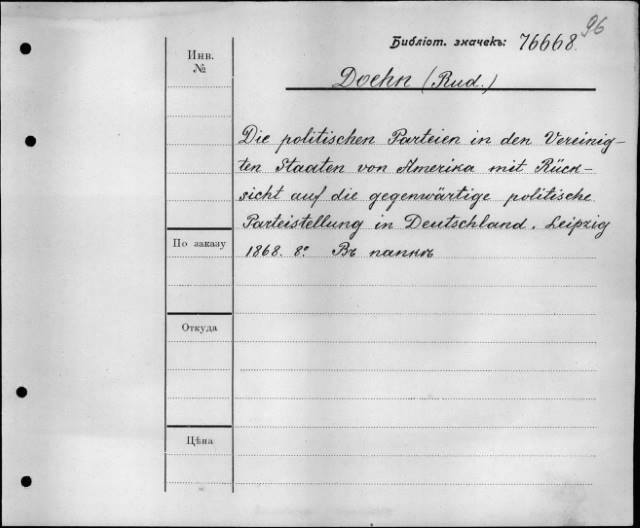 96
Библіот. значекъ: 76668.
Инв.
№
Doehn (Rud.)
Die politischen Parteien in den Vereinig-
ten Staaten von Amerika mit Rück-
sicht auf die gegenwärtige politische
Parteistellung in Deutschland. Leipzig
1868. 8º. Въ папкѣ
По заказу
Откуда
Цѣна